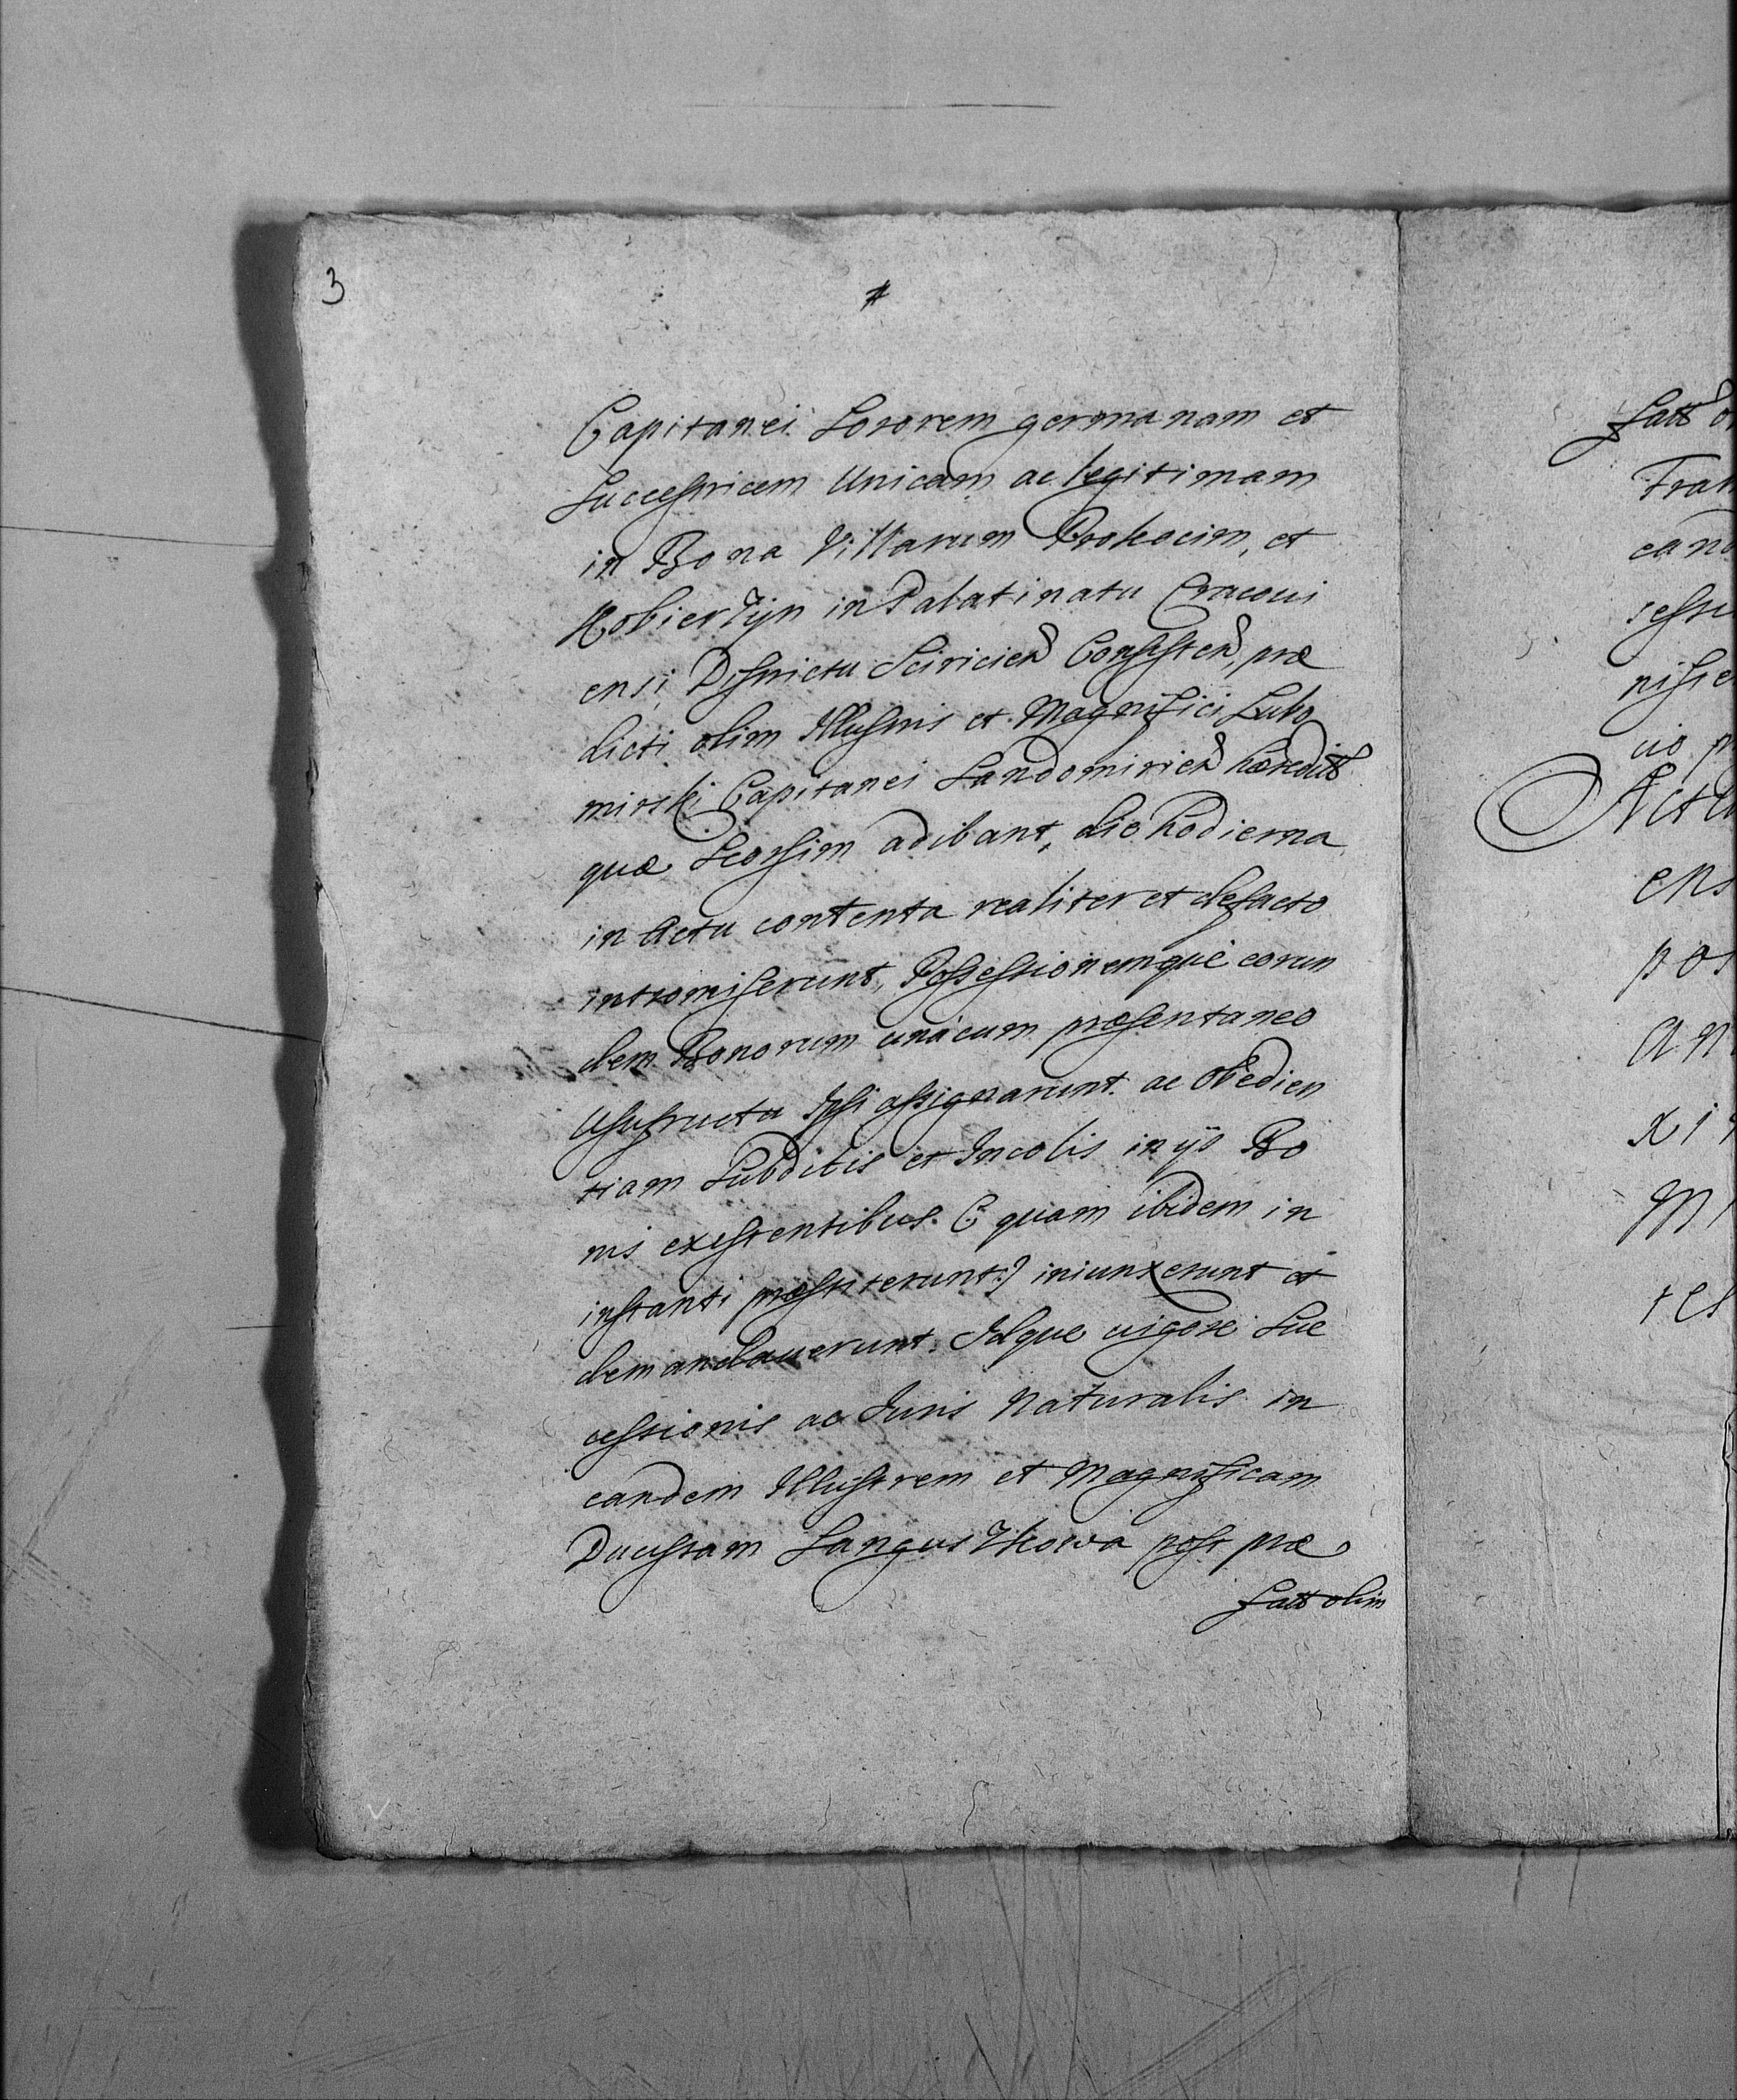 3
Capitanei Sororem germanam et
Successricem Unicam ac legitimam
in Bona Villarum Prokocim, et
Kobierzyn in Palatinatu Cracovi
ensi, Districtu Sciricien Consisten, præ
dicti olim Illustris et Magnifici Lubo
mirski Capitanei Sandomirien hæredit
quæ Seorsim adibant, die hodierna
in Actu contenta realiter et defacto
intromiserunt, Possessionemque eorun
dem Bonorum unacum præsentaneo
Usufructu Ipsi assignarunt. ac Obedien
tiam Subditis et Incolis in ijs Bo
nis existentibus. ( quam ibidem in
instanti præstiterunt.) iniunxerunt et
demandaverunt. Idque vigore Suc
cessionis ac Iuris Naturalis in
eandem Illustrem et Magnificam
Ducissam Sanguszkowa post præ
fatt olim
fatt
ens
pos